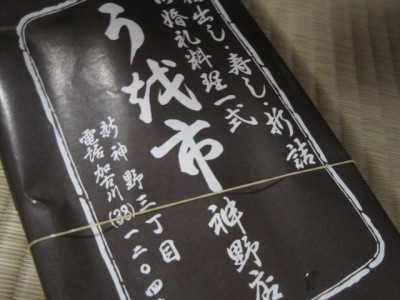 仕出し・寿し・折詰
婚礼料理一式
うを市
神野店
新神野三丁目
電話 加古川(38)一二〇四